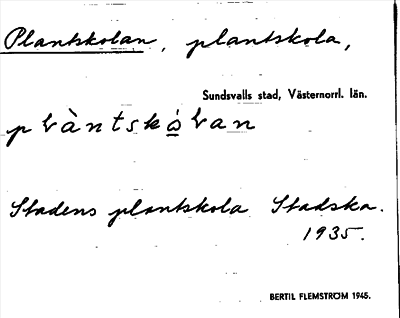 Plantskolan, plantskola,
Sundsvalls stad, Västernorrl. län.
Stadens plantskola Stadska.
1935.
BERTIL FLEMSTRÖM 1945.